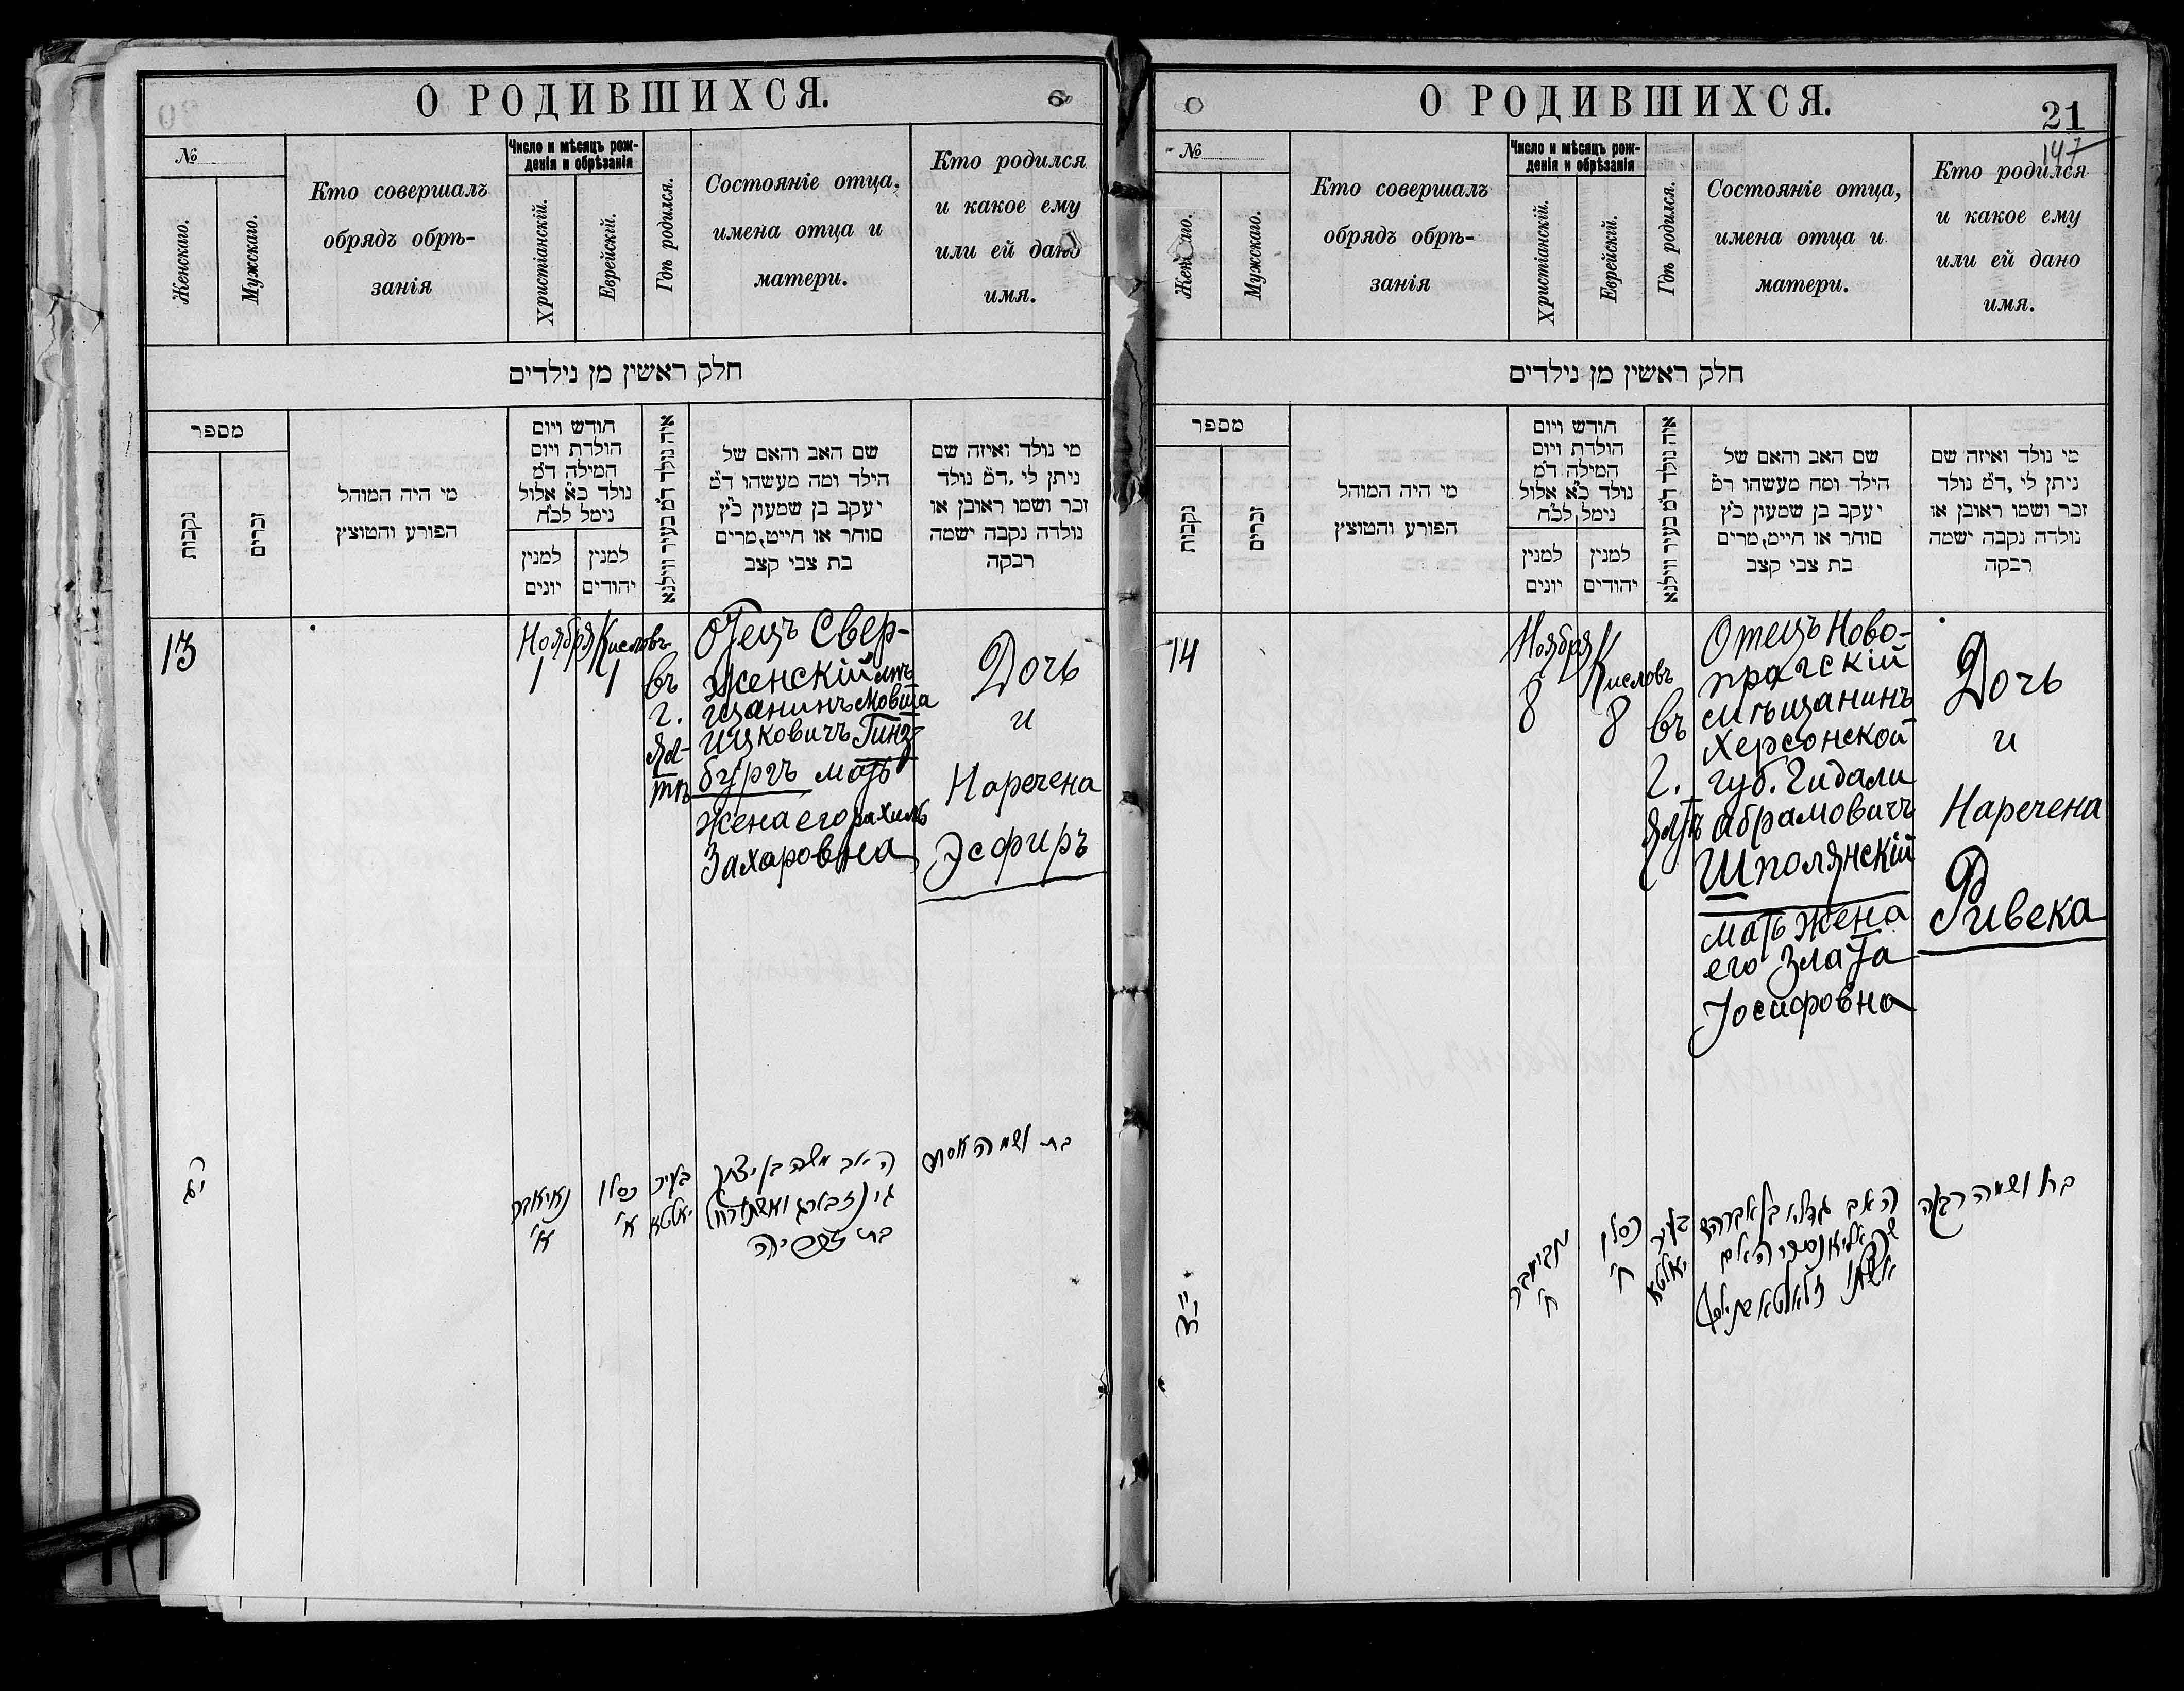 О РОДИВШИХСЯ.
№
Женскаго.
Мужскаго.
Кто совершалъ
обрядъ обрѣ-
занія
Число и мѣсяцъ рож-
денія и обрѣзанія
Христіанскій.
Еврейскій.
Гдѣ родился.
Состояніе отца,
имена отца и
матери.
Кто родился
и какое ему
или ей дано
имя.
חלק ראשין מן נילדים
מספר
נקבות
זכרים
מי היה המוהל
הפורע והמוצץ
חודש ויום
הולדת ויום
המילה ד״מ
נולד כ״א אלול
נימל לכ״ח
למנין
יונים
למנין
יהודים
איה נולד ד״מ בעיר ווילנא
שם האב והאם של
הילד ומה מעשהו ד״מ
יעקב בן שמעון כ״ץ
סוחר או חייט, מרים
בת צבי קצב
מי נולד ואיזה שם
ניתן לי, ד״מ נולד
זכר ושמו ראובן או
נולדה נקבה ישמה
רבקה
13
Ноября
1
Кисловъ
1
въ
г.
Ял-
тѣ
Отецъ Свер-
женскій мѣ-
щанинъ Мовша
Ицковичъ Гинз-
бургъ мать
жена его рахиль
Захаровна
Дочь
и
Наречена
Эсфиръ
יג
נאיאבר
א׳
כסלו
א׳
בעיר
יאלטא
האב משה בן יצחק
גינזבורג ואשתו רחל
בת
בת ושמה אסתר
О РОДИВШИХСЯ.
21
147
№
Женскаго.
Мужскаго.
Кто совершалъ
обрядъ обрѣ-
занія
Число и мѣсяцъ рож-
денія и обрѣзанія
Христіанскій.
Еврейскій.
Гдѣ родился.
Состояніе отца,
имена отца и
матери.
Кто родился
и какое ему
или ей дано
имя.
חלק ראשין מן נילדים
מספר
נקבות
זכרים
מי היה המוהל
הפורע והמוצץ
חודש ויום
הולדת ויום
המילה ד״מ
נולד כ״א אלול
נימל לכ״ח
למנין
יונים
למנין
יהודים
איה נולד ד״מ בעיר ווילנא
שם האב והאם של
הילד ומה מעשהו ד״מ
יעקב בן שמעון כ״ץ
סוחר או חייט, מרים
בת צבי קצב
מי נולד ואיזה שם
ניתן לי, ד״מ נולד
זכר ושמו ראובן או
נולדה נקבה ישמה
רבקה
14
Ноября
8
Кисловъ
8
въ
г.
Ялтѣ
Отецъ Ново-
прагскій
мѣщанинъ
Херсонской
губ. Гидали
Абрамовичъ
Шполянскій
мать жена
его Злата
Іосифовна
Дочь
и
Наречена
Ривека
יד
ח׳
כסלו
ח׳
בעיר
יאלטא
האב גדליו בן אברהם
האם
אשתו זלאטא
בת ושמה רבקה